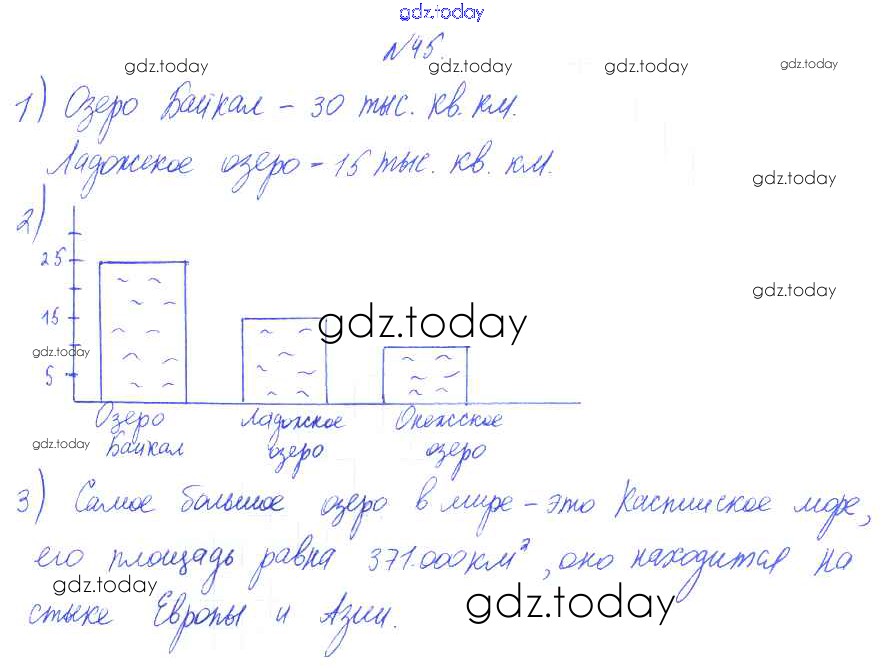 gdz.today
№45.
gdz.today gdz.today gdz.today gdz.today
1) Озеро Байкал - 30 тыс. кв. км.
Ладожское озеро - 15 тыс. кв. км.
gdz.today
2)
25
gdz.today
15
gdz.today
gdz.today
5
Озеро Байкал
Ладожское озеро
Онежское озеро
gdz.today
3) Самое большое озеро в мире - это Каспийское море,
его площадь равна 371.000 км², оно находится на
gdz.today
стыке Европы и Азии.
gdz.today